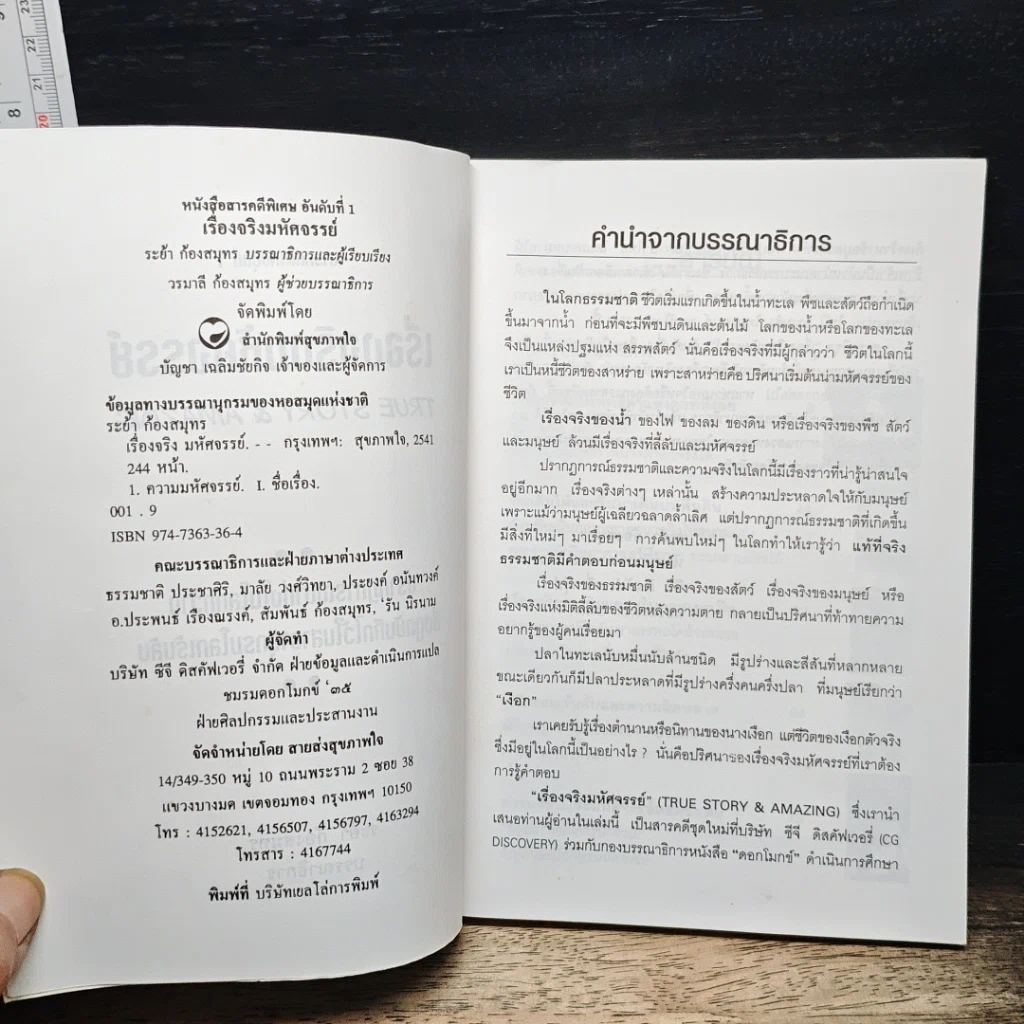 หนังสือสารคดีพิเศษ อันดับที่ 1
เรื่องจริงมหัศจรรย์
ระย้า ก้องสมุทร บรรณาธิการและผู้เรียบเรียง
วรมาลี ก้องสมุทร ผู้ช่วยบรรณาธิการ
จัดพิมพ์โดย
สำนักพิมพ์สุขภาพใจ
บัญชา เฉลิมชัยกิจ เจ้าของและผู้จัดการ
ข้อมูลทางบรรณานุกรมของหอสมุดแห่งชาติ
ระย้า ก้องสมุทร
เรื่องจริง มหัศจรรย์. - - กรุงเทพฯ: สุขภาพใจ, 2541
244 หน้า.
1. ความมหัศจรรย์. I. ชื่อเรื่อง.
001 . 9
ISBN 974-7363-36-4
คณะบรรณาธิการและฝ่ายภาษาต่างประเทศ
ธรรมชาติ ประชาศิริ, มาลัย วงศ์วิทยา, ประยงค์ อนันทวงศ์
อ.ประพนธ์ เรืองณรงค์, สัมพันธ์ ก้องสมุทร, 'รัน นิรนาม
ผู้จัดทำ
บริษัท ซีจี ดิสคัฟเวอรี่ จำกัด ฝ่ายข้อมูลและดำเนินการแปล
ชมรมดอกโมกข์ '๓๕
ฝ่ายศิลปกรรมและประสานงาน
จัดจำหน่ายโดย สายส่งสุขภาพใจ
14/349-350 หมู่ 10 ถนนพระราม 2 ซอย 38
แขวงบางมด เขตจอมทอง กรุงเทพฯ 10150
โทร : 4152621, 4156507, 4156797, 4163294
โทรสาร : 4167744
พิมพ์ที่ บริษัทเยลโล่การพิมพ์
คำนำจากบรรณาธิการ
ในโลกธรรมชาติ ชีวิตเริ่มแรกเกิดขึ้นในน้ำทะเล พืชและสัตว์ถือกำเนิด
ขึ้นมาจากน้ำ ก่อนที่จะมีพืชบนดินและต้นไม้ โลกของน้ำหรือโลกของทะเล
จึงเป็นแหล่งปฐมแห่ง สรรพสัตว์ นั่นคือเรื่องจริงที่มีผู้กล่าวว่า ชีวิตในโลกนี้
เราเป็นหนี้ชีวิตของสาหร่าย เพราะสาหร่ายคือ ปริศนาเริ่มต้นน่ามหัศจรรย์ของ
ชีวิต
เรื่องจริงของน้ำ ของไฟ ของลม ของดิน หรือเรื่องจริงของพืช สัตว์
และมนุษย์ ล้วนมีเรื่องจริงที่ลี้ลับและมหัศจรรย์
ปรากฏการณ์ธรรมชาติและความจริงในโลกนี้มีเรื่องราวที่น่ารู้น่าสนใจ
อยู่อีกมาก เรื่องจริงต่างๆ เหล่านั้น สร้างความประหลาดใจให้กับมนุษย์
เพราะแม้ว่ามนุษย์ผู้เฉลียวฉลาดล้ำเลิศ แต่ปรากฏการณ์ธรรมชาติที่เกิดขึ้น
มีสิ่งที่ใหม่ๆ มาเรื่อยๆ การค้นพบใหม่ๆ ในโลกทำให้เรารู้ว่า แท้ที่จริง
ธรรมชาติมีคำตอบก่อนมนุษย์
เรื่องจริงของธรรมชาติ เรื่องจริงของสัตว์ เรื่องจริงของมนุษย์ หรือ
เรื่องจริงแห่งมิติลี้ลับของชีวิตหลังความตาย กลายเป็นปริศนาที่ท้าทายความ
อยากรู้ของผู้คนเรื่อยมา
ปลาในทะเลนับหมื่นนับล้านชนิด มีรูปร่างและสีสันที่หลากหลาย
ขณะเดียวกันก็มีปลาประหลาดที่มีรูปร่างครึ่งคนครึ่งปลา ที่มนุษย์เรียกว่า
"เงือก"
เราเคยรับรู้เรื่องตำนานหรือนิทานของนางเงือก แต่ชีวิตของเงือกตัวจริง
ซึ่งมีอยู่ในโลกนี้เป็นอย่างไร ? นั่นคือปริศนาของเรื่องจริงมหัศจรรย์ที่เราต้อง
การรู้คำตอบ
"เรื่องจริงมหัศจรรย์" (TRUE STORY & AMAZING) ซึ่งเรานำ
เสนอท่านผู้อ่านในเล่มนี้ เป็นสารคดีชุดใหม่ที่บริษัท ซีจี ดิสคัฟเวอรี่ (CG
DISCOVERY) ร่วมกับกองบรรณาธิการหนังสือ "ดอกโมกข์" ดำเนินการศึกษา